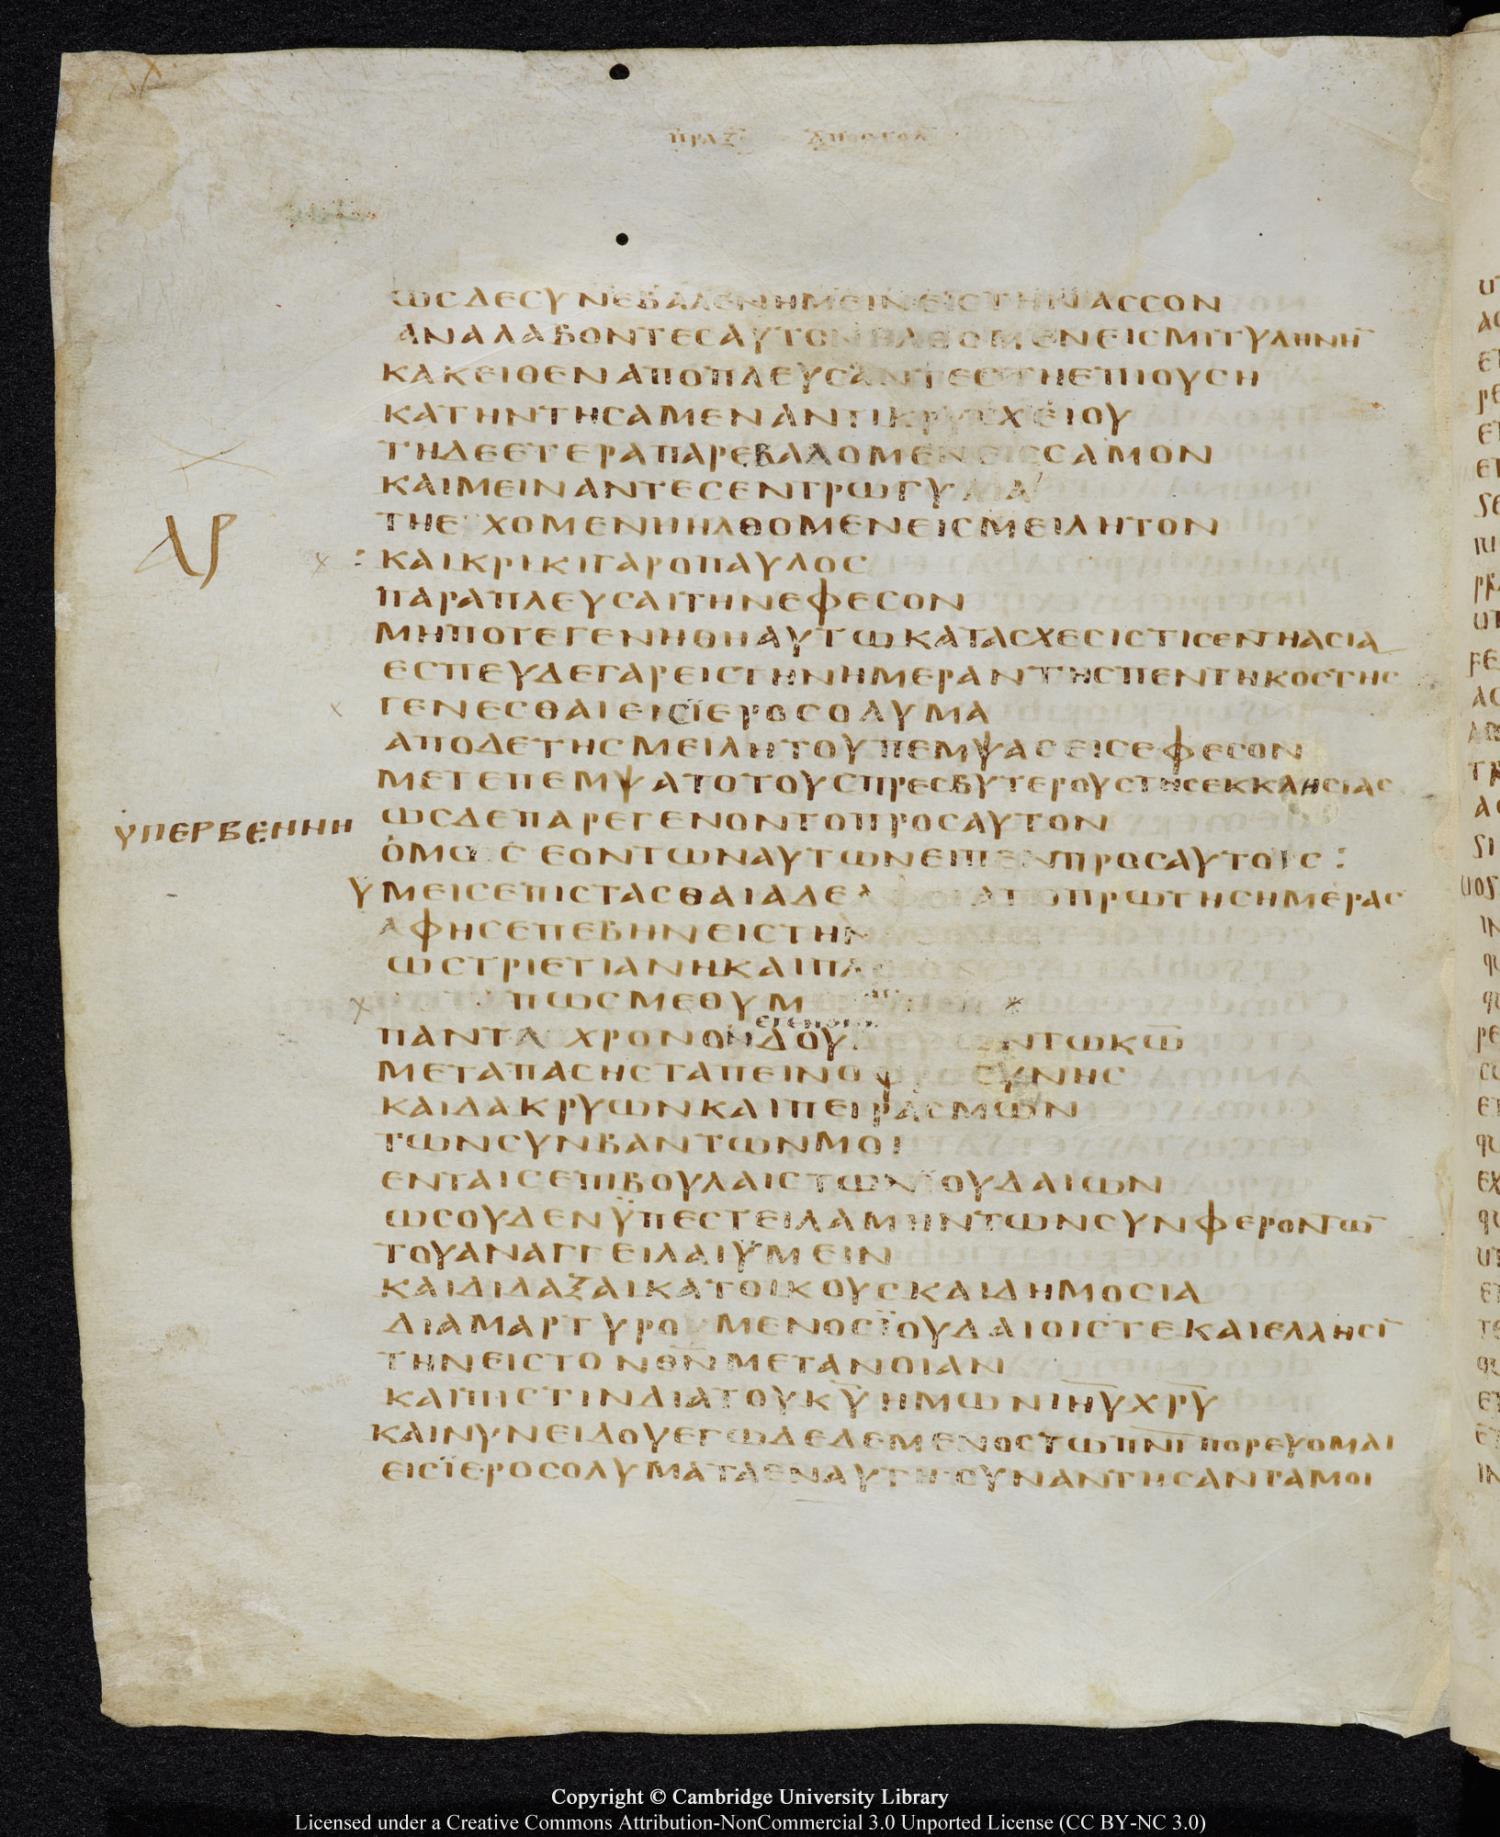 ΠΡΑΞ ΑΠΟΣΤΟΛ
ΩСΔΕСΥΝΕΒΑΛΕΝΗΜΕΙΝΕΙСΤΗΝΑССΟΝ
ΑΝΑΛΑΒΟΝΤΕСΑΥΤΟΝΗΛΘΟΜΕΝΕΙСΜΙΤΥΛΗΝΗ̅
ΚΑΚΕΙΘΕΝΑΠΟΠΛΕΥСΑΝΤΕСΤΗΕΠΙΟΥСΗ
ΚΑΤΗΝΤΗСΑΜΕΝΑΝΤΙΚΡΥСΧΕΙΟΥ
ΤΗΔΕΕΤΕΡΑΠΑΡΕΒΑΛΟΜΕΝΕΙССΑΜΟΝ
ΚΑΙΜΕΙΝΑΝΤΕСΕΝΤΡΩΓΥΛΙΑ
ΤΗΕΧΟΜΕΝΗΗΛΘΟΜΕΝΕΙСΜΕΙΛΗΤΟΝ
:ΚΑΙΚΡΙΚΙΓΑΡΟΠΑΥΛΟС
ΠΑΡΑΠΛΕΥСΑΙΤΗΝΕΦΕСΟΝ
ΜΗΠΟΤΕΓΕΝΗΘΗΑΥΤΩΚΑΤΑСΧΕСΙСΤΙСΕΝΤΗΑСΙΑ
ΕСΠΕΥΔΕΓΑΡΕΙСΤΗΝΗΜΕΡΑΝΤΗСΠΕΝΤΗΚΟСΤΗС
ΓΕΝΕСΘΑΙΕΙСΪΕΡΟСΟΛΥΜΑ
ΑΠΟΔΕΤΗСΜΕΙΛΗΤΟΥΠΕΜΨΑСΕΙСΕΦΕСΟΝ
ΜΕΤΕΠΕΜΨΑΤΟΤΟΥСΠΡΕСΒΥΤΕΡΟΥСΤΗСΕΚΚΛΗСΙΑС
ΫΠΕΡΒΕΝΗΗ ΩСΔΕΠΑΡΕΓΕΝΟΝΤΟΠΡΟСΑΥΤΟΝ
ΟΜΩСΕΟΝΤΩΝΑΥΤΩΝΕΙΠΕΝΠΡΟСΑΥΤΟΥС:
ΥΜΕΙСΕΠΙСΤΑСΘΑΙΑΔΕΛΦΟΙΑΠΟΠΡΩΤΗСΗΜΕΡΑС
ΑΦΗСΕΠΕΒΗΝΕΙСΤΗΝ
ΩСΤΡΙΕΤΙΑΝΗΚΑΙΠΛ
ΠΩСΜΕΘΥΜ
ΠΑΝΤΑ ΧΡΟΝΟΝΔΟΥ ΝΤΩΚΩ̅
ΜΕΤΑΠΑСΗСΤΑΠΕΙΝΟΦΡΟСΥΝΗС
ΚΑΙΔΑΚΡΥΩΝΚΑΙΠΕΙΡΑСΜΩΝ
ΤΩΝСΥΝΒΑΝΤΩΝΜΟΙ
ΕΝΤΑΙСΕΠΙΒΟΥΛΑΙСΤΩΝΪΟΥΔΑΙΩΝ
ΩСΟΥΔΕΝΫΠΕСΤΕΙΛΑΜΗΝΤΩΝСΥΝΦΕΡΟΝΤΩ̅
ΤΟΥΑΝΑΓΓΕΙΛΑΙΫΜΕΙΝ
ΚΑΙΔΙΔΑΞΑΙΚΑΤΟΙΚΟΥСΚΑΙΔΗΜΟСΙΑ
ΔΙΑΜΑΡΤΥΡΟΥΜΕΝΟСΪΟΥΔΑΙΟΙСΤΕΚΑΙΕΛΛΗСΙ̅
ΤΗΝΕΙСΤΟΝΘ̅Ν̅ΜΕΤΑΝΟΙΑΝ
ΚΑΙΠΙСΤΙΝΔΙΑΤΟΥΚ̅Υ̅ΗΜΩΝΙ̅Η̅Υ̅Χ̅Ρ̅Υ̅
ΚΑΙΝΥΝΕΙΔΟΥΕΓΩΔΕΔΕΜΕΝΟСΤΩΠ̅Ν̅Ι̅ΠΟΡΕΥΟΜΑΙ
ΕΙСΪΕΡΟСΟΛΥΜΑΤΑΕΝΑΥΤΗСΥΝΑΝΤΗСΑΝΤΑΜΟΙ
Copyright © Cambridge University Library
Licensed under a Creative Commons Attribution-NonCommercial 3.0 Unported License (CC BY-NC 3.0)